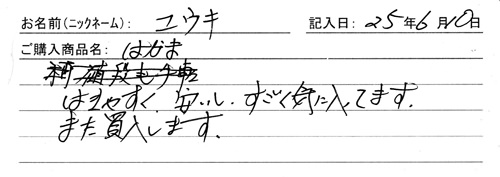 お名前(ニックネーム): ユウキ 記入日: 25年6月10日
ご購入商品名: はかま
はきやすく、安いし、すごく気に入ってます。
また買入します。